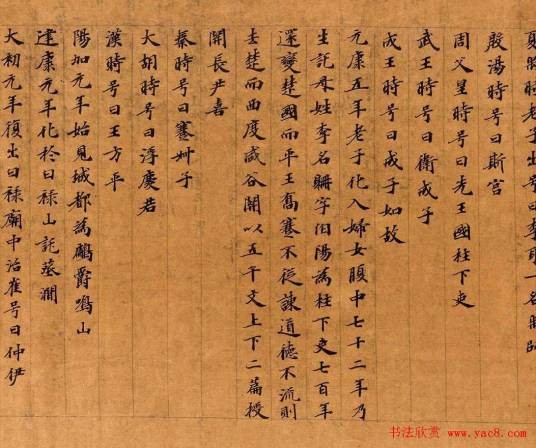 時老子出号曰李耳一名
殷湯時号曰斯宮
周父皇時号曰先王國柱下吏
武王時号曰衛成子
成王時号曰成子如故
元康五年老子化入婦女腹中七十二年乃
生託母姓李名聃字伯陽為柱下吏七百年
還變楚國而平王喬蹇不從諫道德不流則
去楚而西度咸谷關以五千文上下二篇授
關長尹喜
秦時号曰蹇叔子
大胡時号曰浮慶君
漢時号曰王方平
陽加元年始見城都為鸕爵鳴山
建康元年化於白祿山託葬澗
大初元年復出白祿廟中治崔号曰仲伊
书法欣赏 www.yac8.com